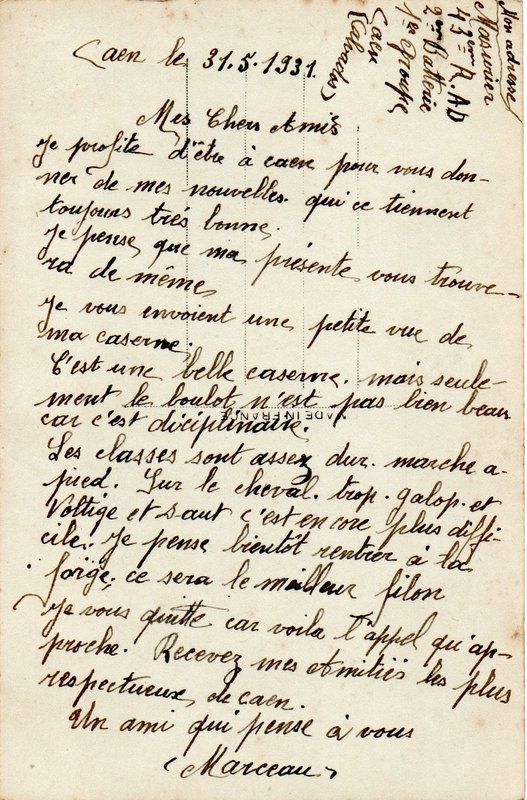 Mon adresse
Marinier
43ème R.A.D
2ème Batterie
1er Groupe
Caen
(Calvados)
Caen le 31.5.1931.
Mes Chers Amis
Je profite d'être à caen pour vous don-
ner de mes nouvelles. qui ce tiennent
toujours trés bonne.
je pense, que ma présente vous trouve-
ra de même,
Je vous envoient une petite vue de
ma caserne.
C'est une belle caserne. mais seule-
ment le boulot n'est pas bien beau
car c'est diciplinaire.
MADE IN FRANCE
Les classes sont assez dur. marche a-
pied. Sur le cheval. trop. galop. et
Voltige et saut c'est encore plus diffi-
cile. Je pense bientôt rentrer à la
forge, ce sera le meilleur filon
Je vous quitte car voila l'appel qu'ap-
proche. Recevez mes Amitiés les plus
respectueux, de caen.
Un ami qui pense à vous
(Marceau)